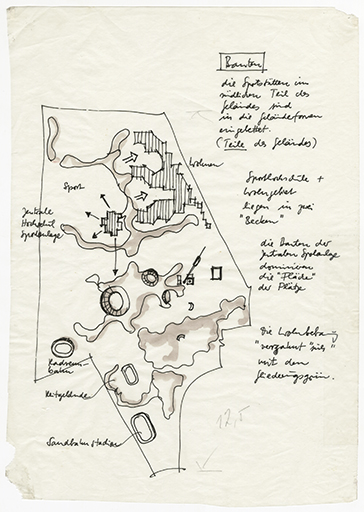 Bauten
die Sportstätten im
südlichen Teil des
Geländes sind
in die Geländeformen
eingebettet.
(Teile des Geländes)
Wohnen
Sport
Zentrale
Hochschul
Sportanlage
Sporthochschule +
Wohngebiet
liegen in zwei
"Becken"
die Bauten der
zentralen Sportanlage
dominieren
die "Fläche"
der Plätze
Die Wohnbebauung
"verzahnt" sich
mit dem
Gliederungsgrün.
Radrenn-
bahn
Reitgelände
Sandbahnstadion
17,5